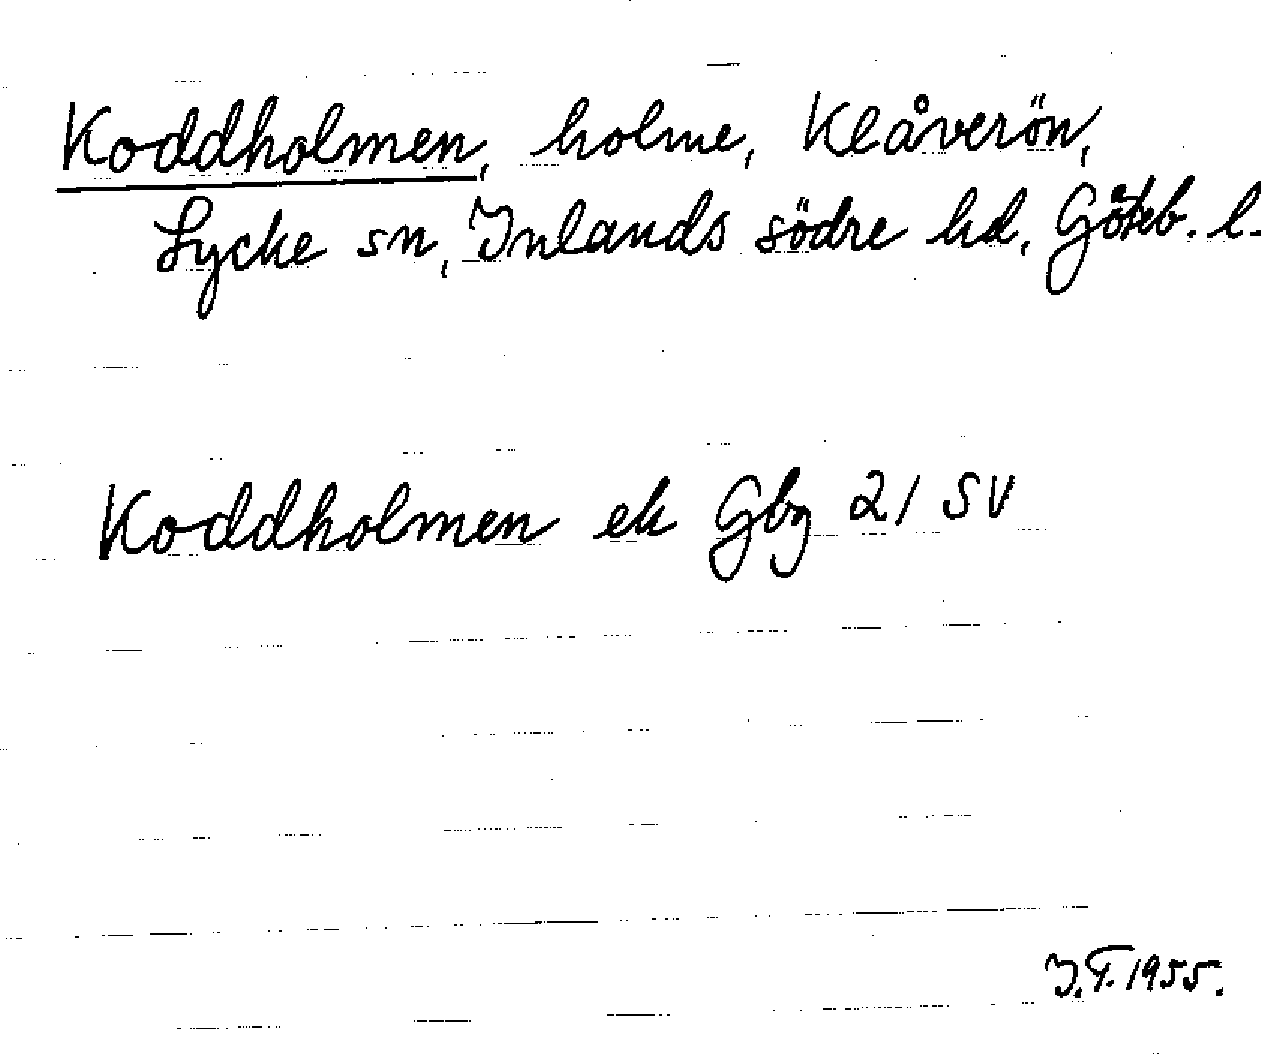 Koddholmen, holme, Klåverön,
Lycke sn, Inlands södre hd, Göteb. l.
Koddholmen ek Gbg 21 SV
I.F. 1955.